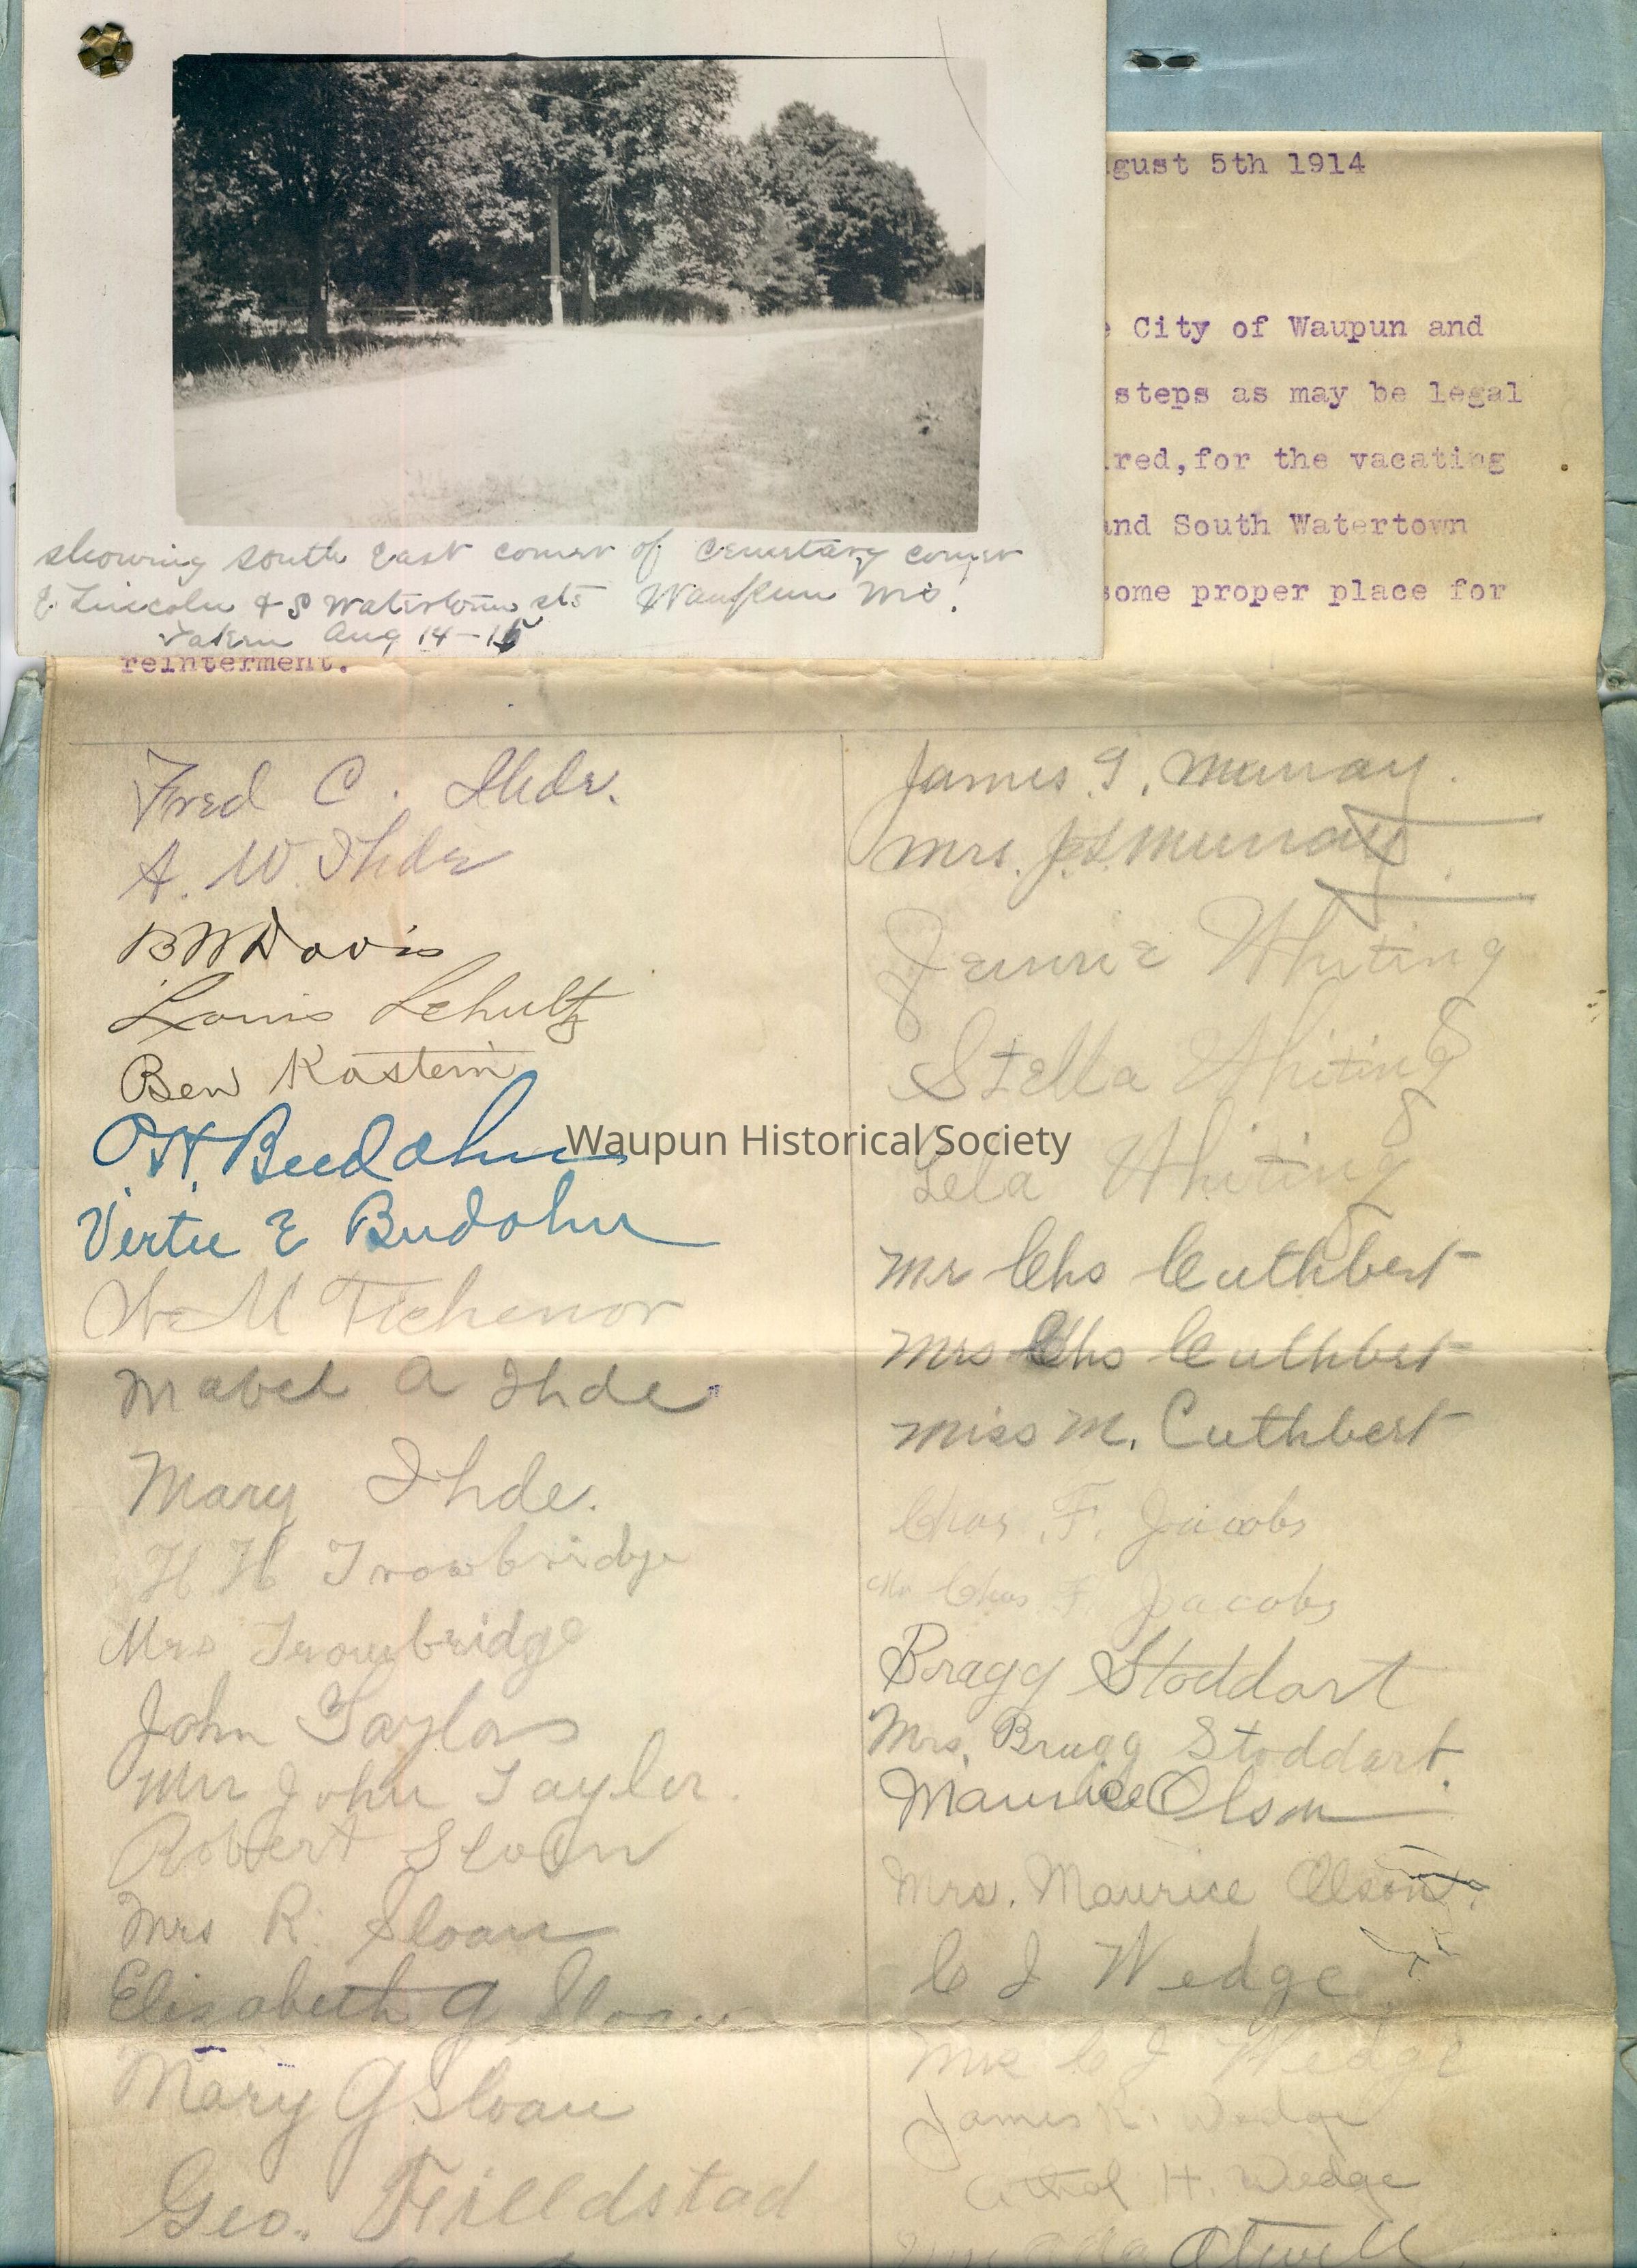 gust 5th 1914
City of Waupun and
steps as may be legal
red,for the vacating
and South Watertown
some proper place for
showing south East corner of Cemetary corner
E. Lincoln & S Watertown sts Waupun Wis.
Taken Aug 14-15
reinterment.
Fred C. Ihde.
A. W. Ihde
B W Davis
Louis Schultz
Ben Kastein
O. H. Beedohn
Vertie E Budohn
W M Tichenor
Mabel A Ihde
Mary Ihde.
H H Trowbridge
Mrs Trowbridge
John Taylor
Mrs John Taylor.
Robert Sloan
Mrs R. Sloan
Elizabeth G Sloan
Mary G Sloan
Geo.
James G. Murray.
Mrs. J. G. Murray
Jennie Whiting
Stella Whiting
Lela Whiting
Waupun Historical Society
Mr Chs Cuthbert
Mrs Chs Cuthbert
Miss M. Cuthbert
Chas. F. Jacobs
Mrs Chas F. Jacobs
Bragg Stoddart
Mrs. Bragg Stoddart.
Maurice Olson
Mrs. Maurice Olson.
C J Wedge
Mrs C J Wedge
James R. Wedge
H. Wedge
Atwell